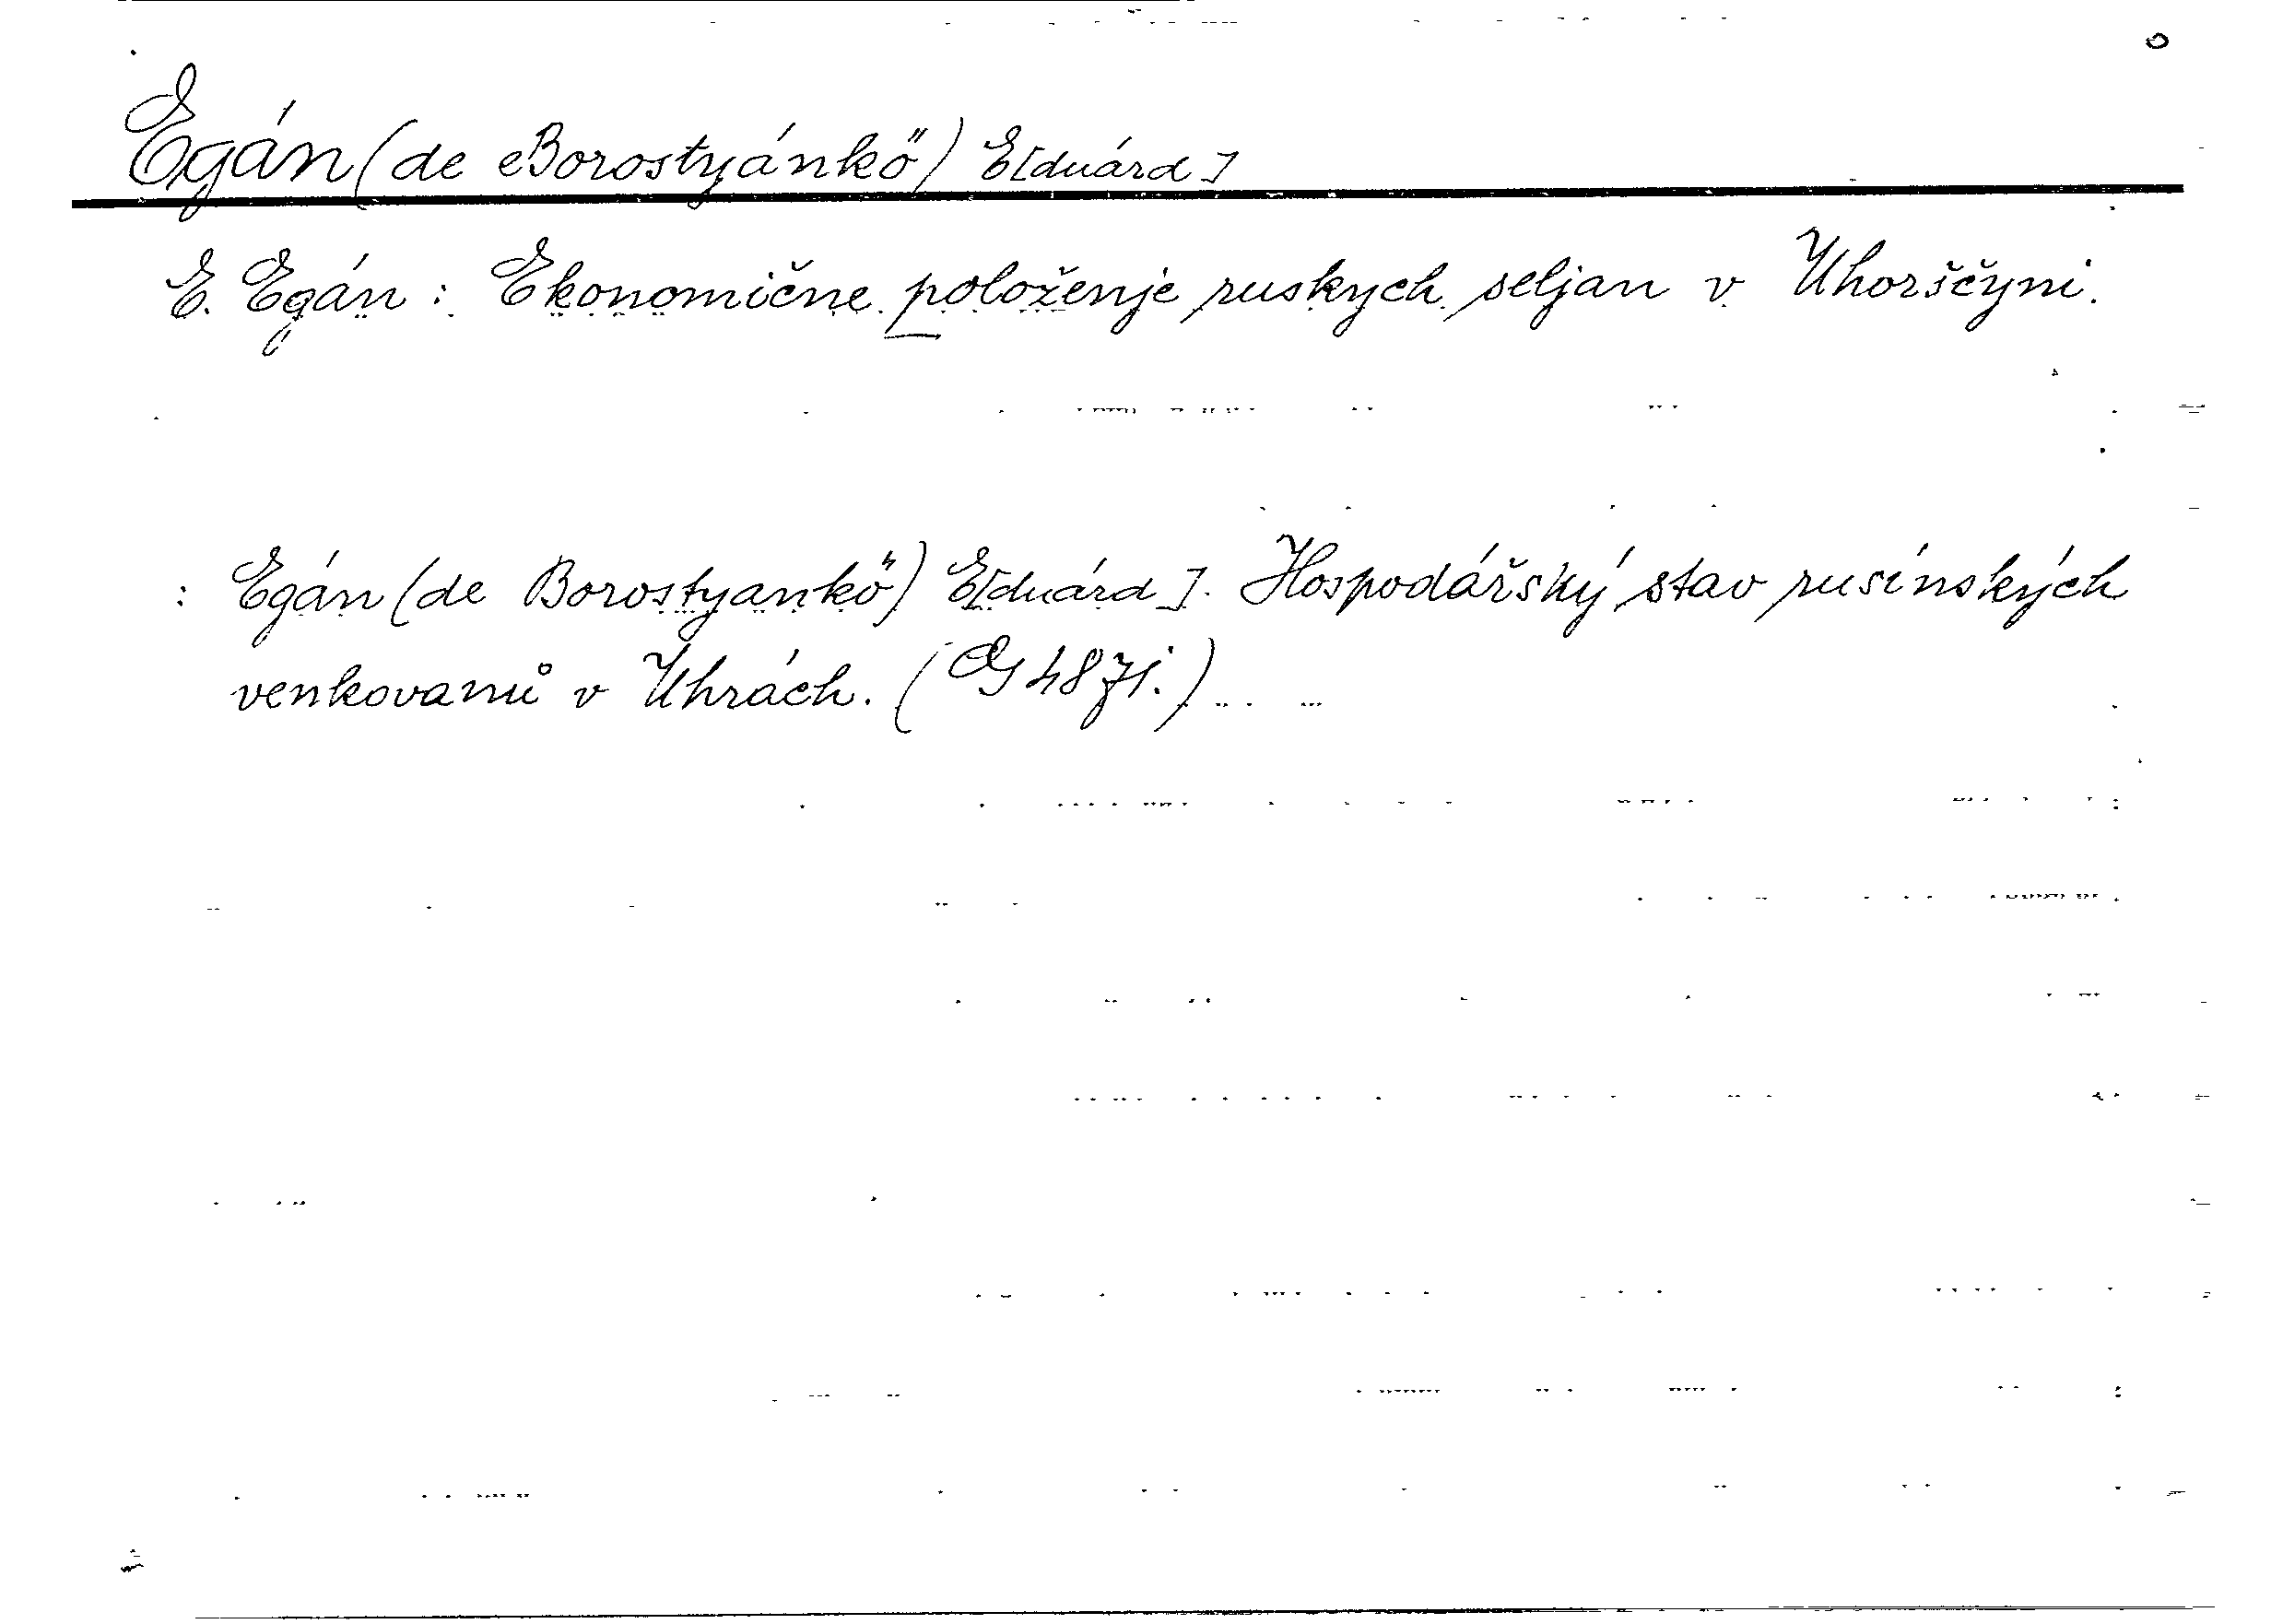 Egán (de Borostyánkő) E[duárd]
E. Egán : Ekonomične položenje ruskych seljan v Uhorščyni.
: Egán (de Borostyankő) E[duárd]. Hospodářský stav rusínských
venkovanů v Uhrách. (Og 4871.)